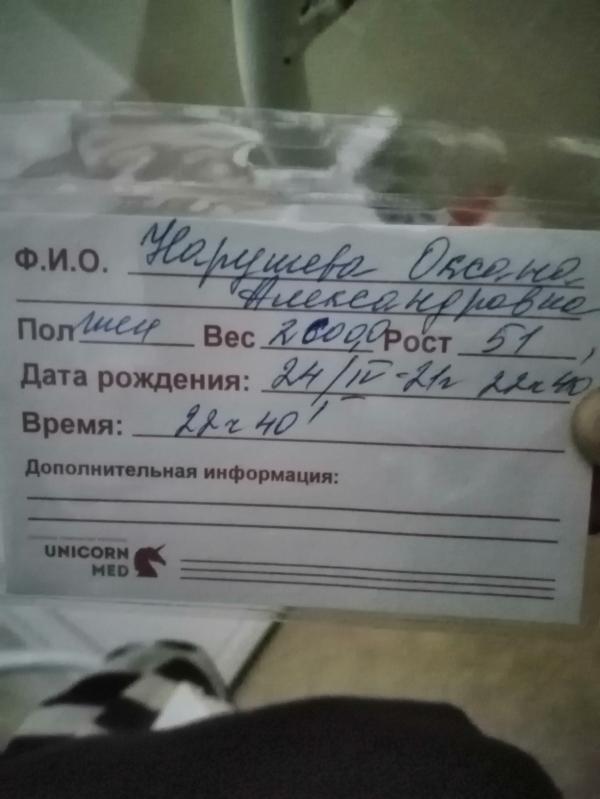 Ф.И.О. Нарушева Оксана
Александровна
Пол жен Вес 2600,0 Рост 51
Дата рождения: 24/IV-21г 22ч40
Время: 22ч 40'
Дополнительная информация:
UNICORN
MED